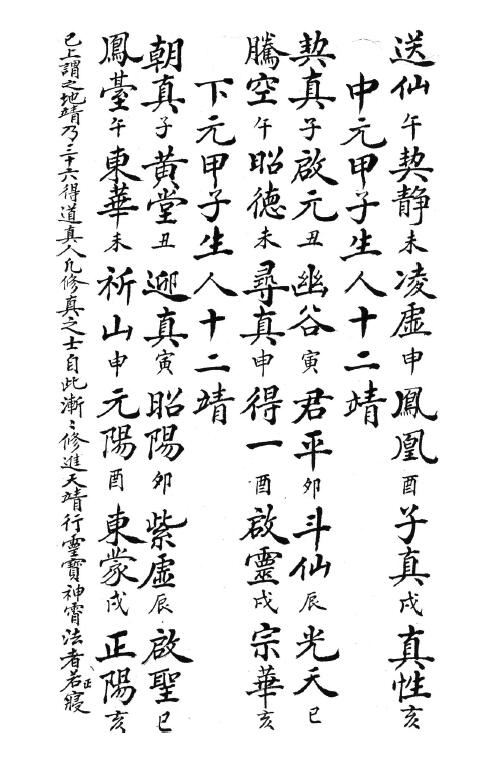 送仙午契靜未凌虛申鳳凰酉子真戌真性亥
中元甲子生人十二靖
契真子啟元丑幽谷寅君平卯斗仙辰光天巳
騰空午昭德未尋真申得一酉啟靈戌宗華亥
下元甲子生人十二靖
朝真子黃堂丑迎真寅昭陽卯紫虛辰啟聖巳
鳳臺午東華未祈山申元陽酉東蒙戌正陽亥
已上謂之地靖乃三十六得道真人凡修真之士自此漸〻修進天靖行靈寶神霄法者若正寢